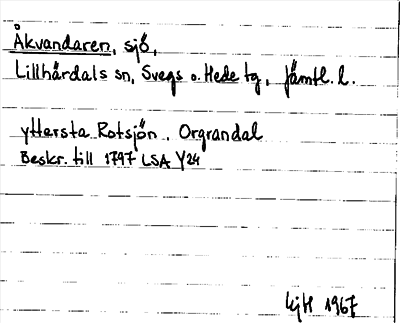 Åkvandaren, sjö,
Lillhärdals sn, Svegs o. Hede tg, Jämtl. l.
yttersta Rotsjön, Orgrandal
Beskr. till 1797 LSA Y24
1967